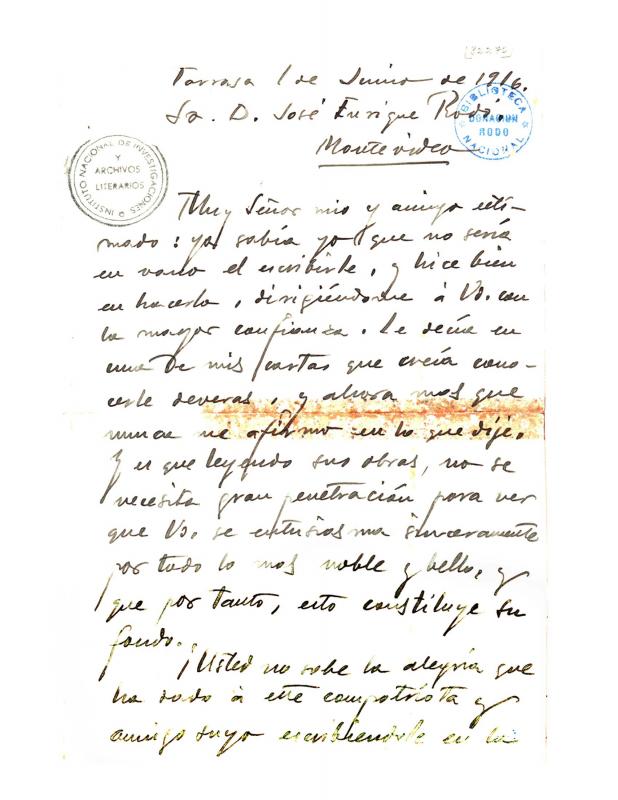 (82275)
Tarrasa 1 de Junio de 1916.
Sr. D. José Enrique Rodó.
Montevideo
BIBLIOTECA NACIONAL
DONACION
RODO
INSTITUTO NACIONAL DE INVESTIGACIONES
Y
ARCHIVOS
LITERARIOS
Muy Señor mio y amigo esti-
mado: ya sabía yo que no sería
en vano el escribirle, y hice bien
en hacerlo, dirigiéndome á Vd. con
la mayor confianza. Le decía en
una de mis cartas que creía cono-
cerle deveras, y ahora mas que
nunca me afirmo en lo que dije.
Y es que leyendo sus obras, no se
necesita gran penetración para ver
que Vd. se entusiasma sinceramente
por todo lo mas noble y bello, y
que por tanto, esto constituye su
fondo.
¡Usted no sabe la alegría que
ha dado á este compatriota y
amigo suyo escribiendole en la